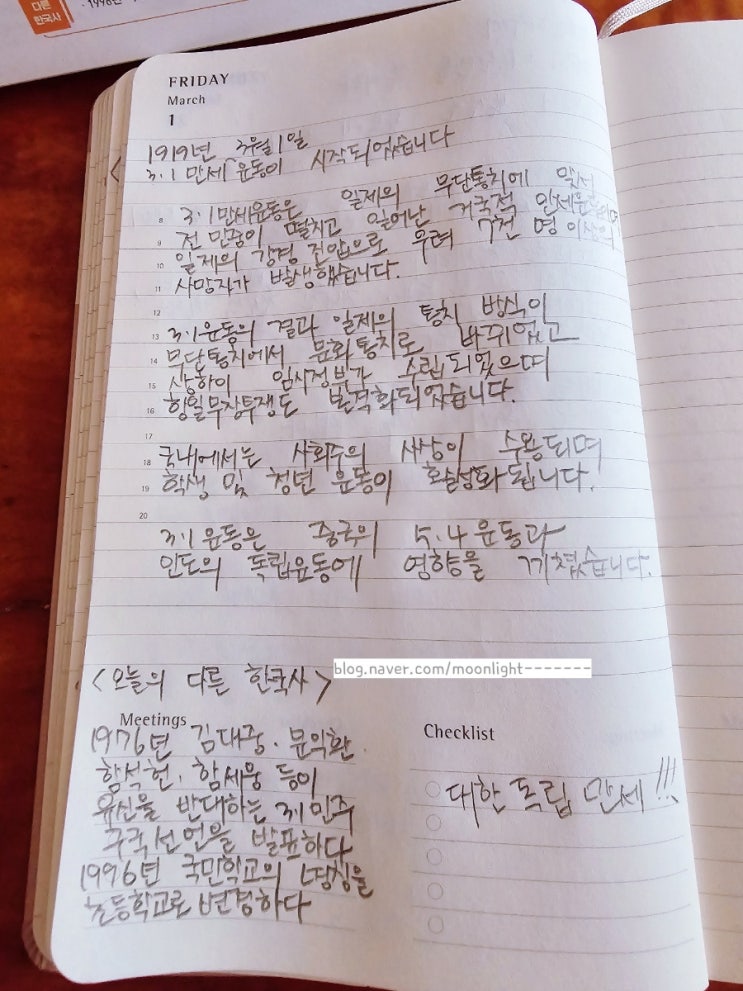 다른
한국사
1996년
FRIDAY
March
1
1919년 3월 1일
3.1 만세 운동이 시작되었습니다
8 3.1만세운동은 일제의 무단통치에 맞서
9 전 민중이 떨치고 일어난 거국적 만세운동이며
10 일제의 강경 진압으로 무려 7천 명 이상의
11 사망자가 발생했습니다.
12
13 3.1운동의 결과 일제의 통치 방식이
14 무단통치에서 문화통치로 바뀌었고
15 상하이 임시정부가 수립되었으며
16 항일무장투쟁도 본격화되었습니다.
17
18 국내에서는 사회주의 사상이 수용되며
19 학생 및 청년 운동이 활성화됩니다.
20
3.1 운동은 중국의 5.4 운동과
인도의 독립운동에 영향을 끼쳤습니다.
blog.naver.com/moonlight-------
<오늘의 다른 한국사>
Meetings
1976년 김대중. 문익환.
함석헌. 함세웅 등이
유신을 반대하는 3.1 민주
구국선언을 발표하다
1996년 국민학교의 명칭을
초등학교로 변경하다
Checklist
대한 독립 만세!!!